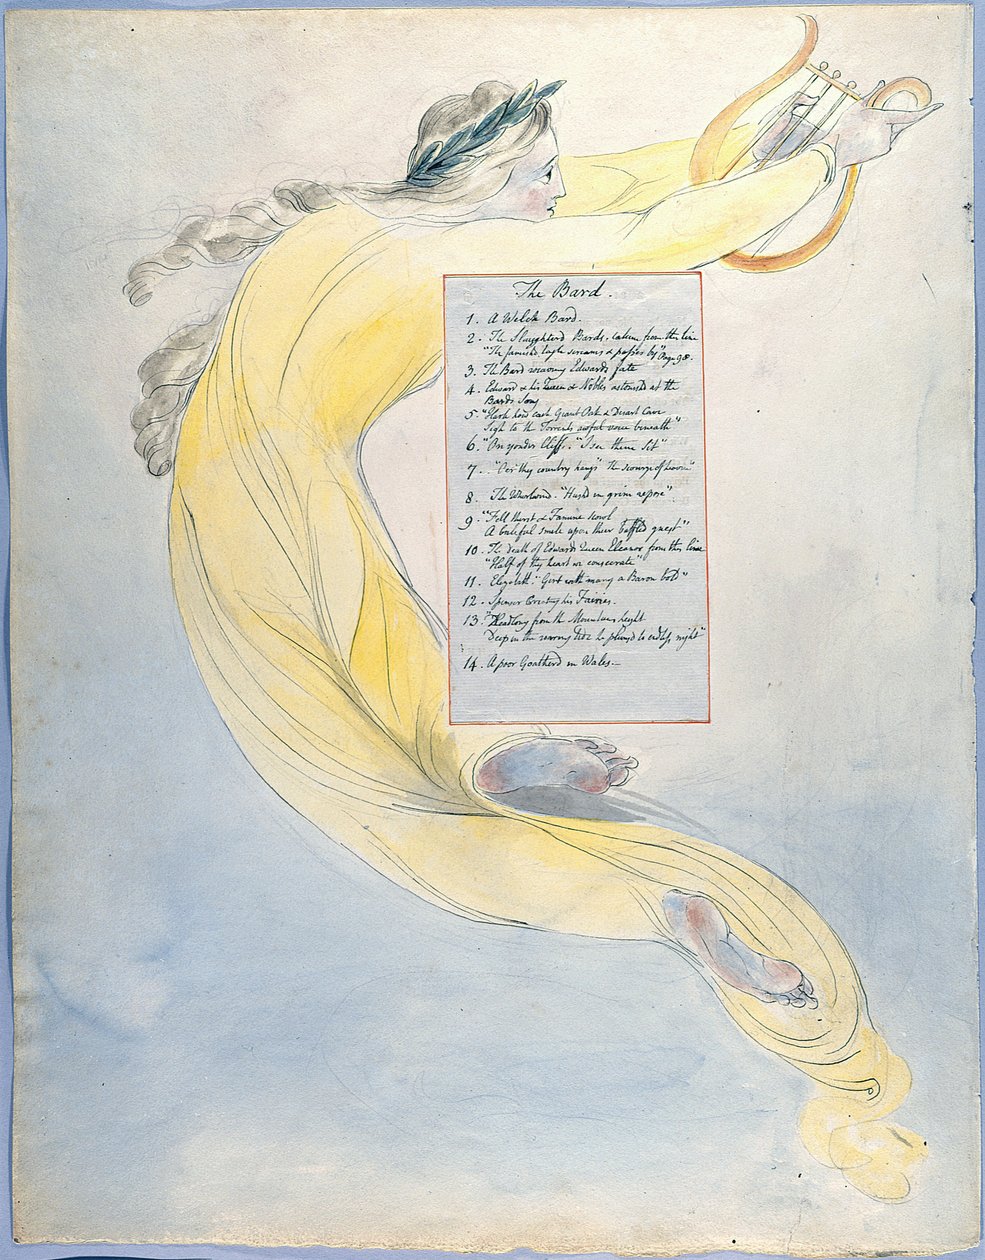 The Bard.
1. A Welch Bard.
2. The Slaughterd Bards. taken from the line
"The famishd Eagle screams & passes by" Page 98
3. The Bard weaving Edwards fate
4. Edward & his Queen & Nobles astonishd at the
Bards Song
5. "Hark how each Giant Oak & Desart Cave
Sigh to the Torrents awful voice beneath"
6. "On yonder Cliffs "I see them Sit"
7. "Oer thy country hangs The scourge of heaven"
8. The Whirlwind. "Hushd in grim repose"
9. "Fell thirst & Famine scowl
A baleful smile upon their baffled guest"
10. The death of Edwards Queen Eleanor from this line
"Half of thy heart we consecrate"
11. Elizabeth. "Girt with many a Baron bold"
12. Spenser Creating his Fairies.
13. "Headlong from the Mountains height
Deep in the roaring tide he plung'd to endless night"
14. A poor Goatherd in Wales.—